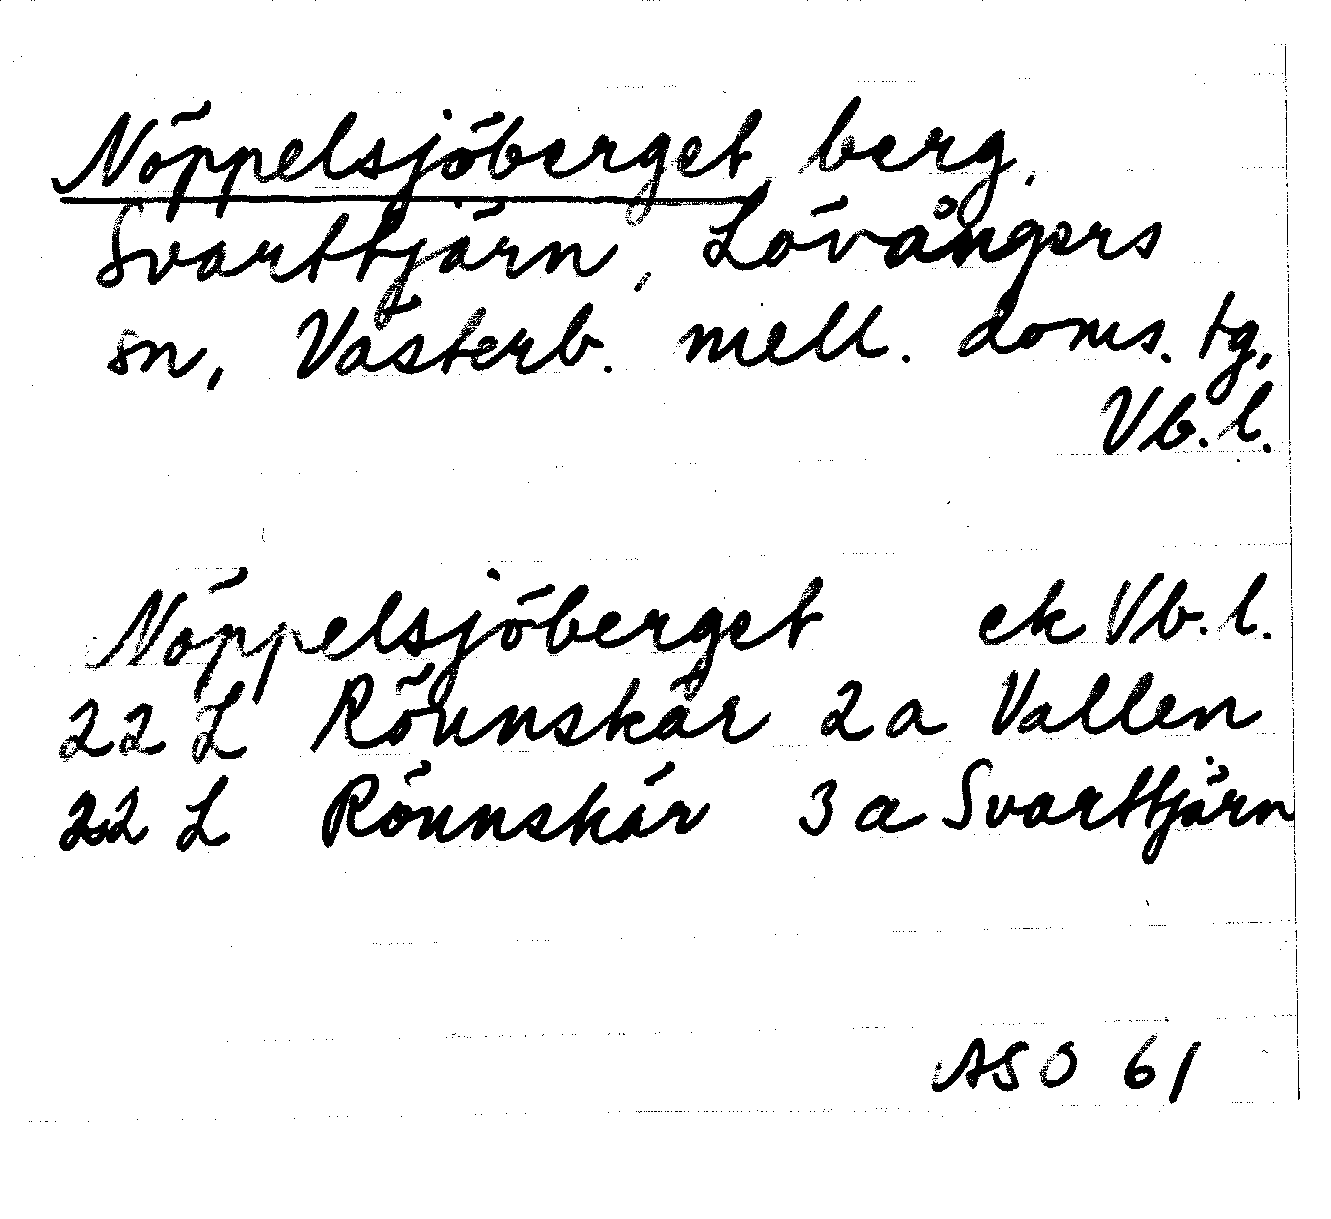 Nöppelsjöberget, berg,
Svarttjärn, Lövångers
sn, Västerb. mell. doms. tg,
Vb. l.
Nöppelsjöberget ek Vb. l.
22 L Rönnskär 2 a Vallen
22 L Rönnskär 3 a Svarttjärn
ASO 61